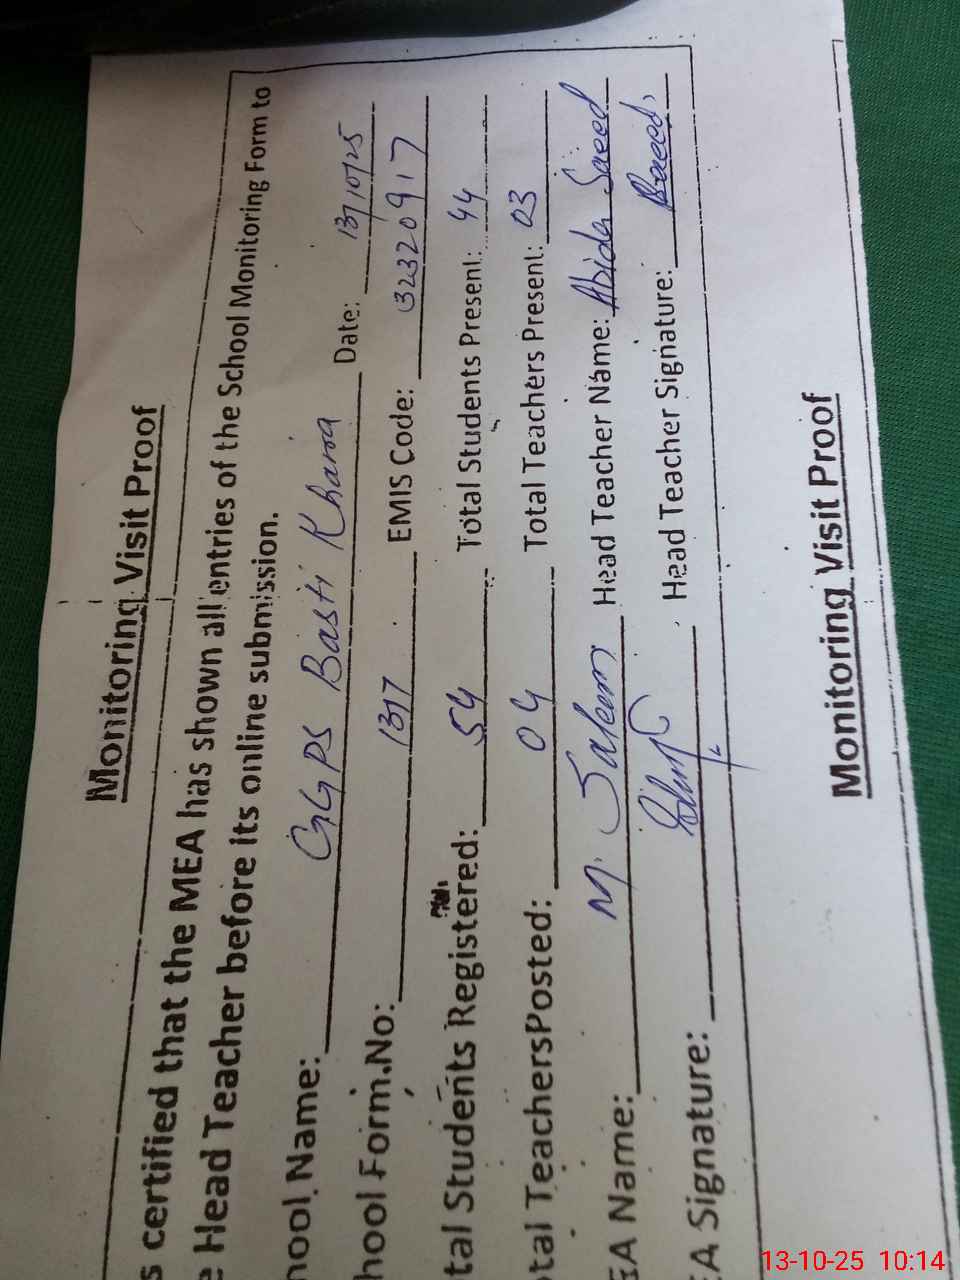 Monitoring Visit Proof
s certified that the MEA has shown all entries of the School Monitoring Form to
e Head Teacher before its online submission.
hool Name: GGPS Basti Khara Date: 13/10/25
hool Form.No: 1317 EMIS Code: 32320917
tal Students Registered: 54 Total Students Present: 44
tal TeachersPosted: 04 Total Teachers Present: 03
EA Name: M. Saleem Head Teacher Name: Abida Saeed
EA Signature: Head Teacher Signature:
Monitoring Visit Proof
13-10-25 10:14